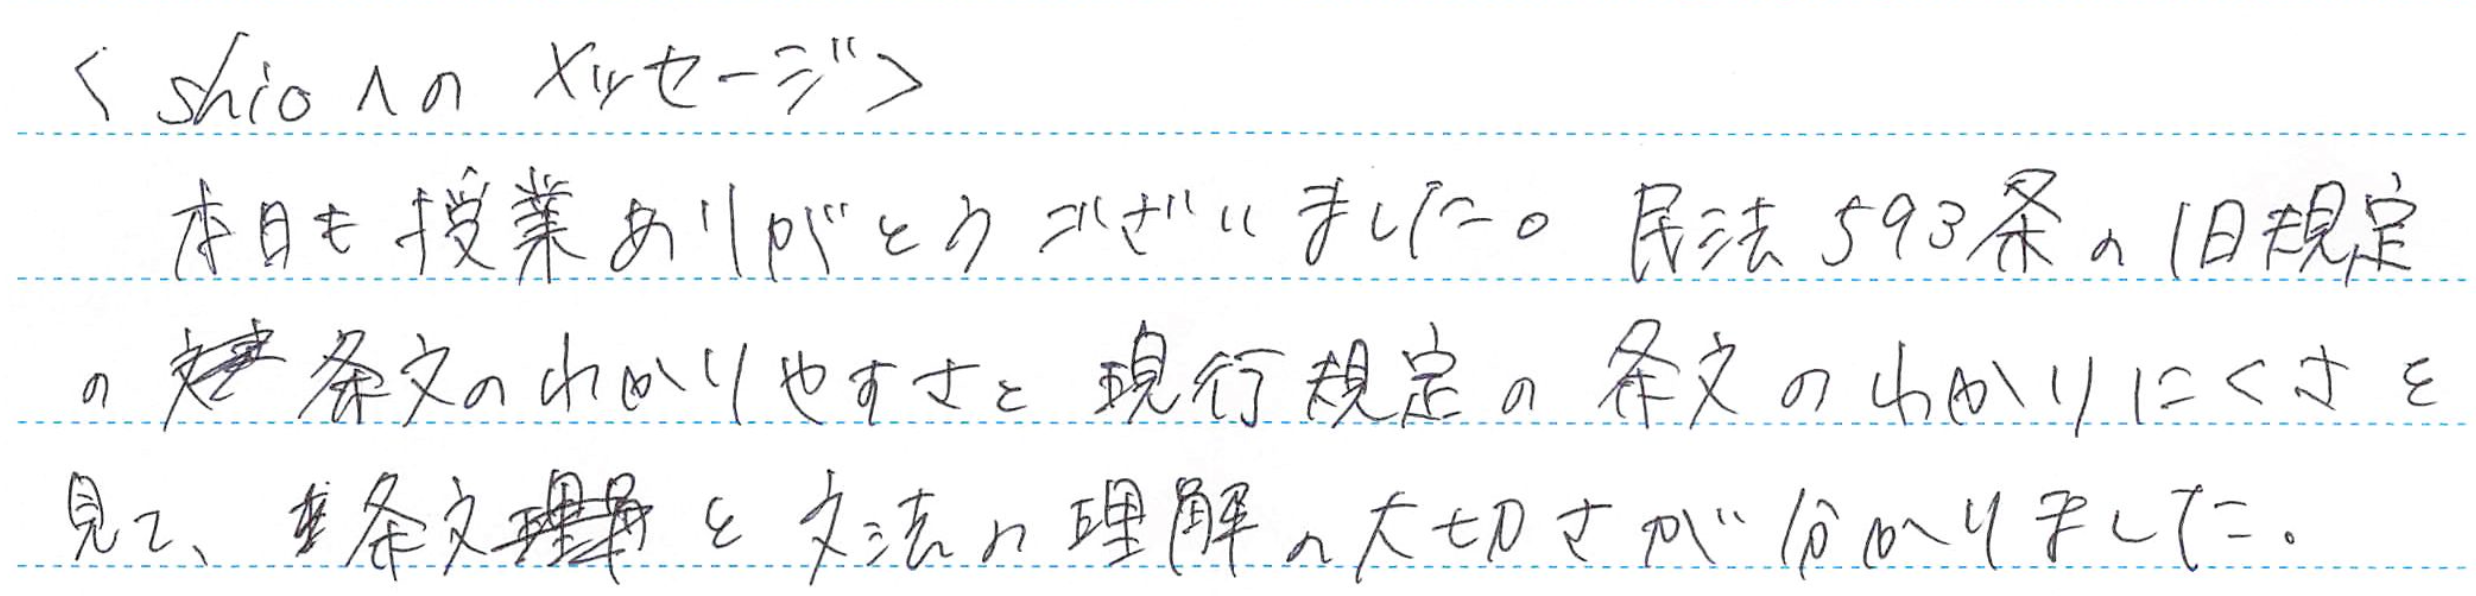 < shioへの メッセージ>
本日も授業ありがとうございました。民法593条の旧規定
の 条文のわかりやすさと 現行規定の 条文のわかりにくさを
見て、条文と文法の理解の大切さが分かりました。